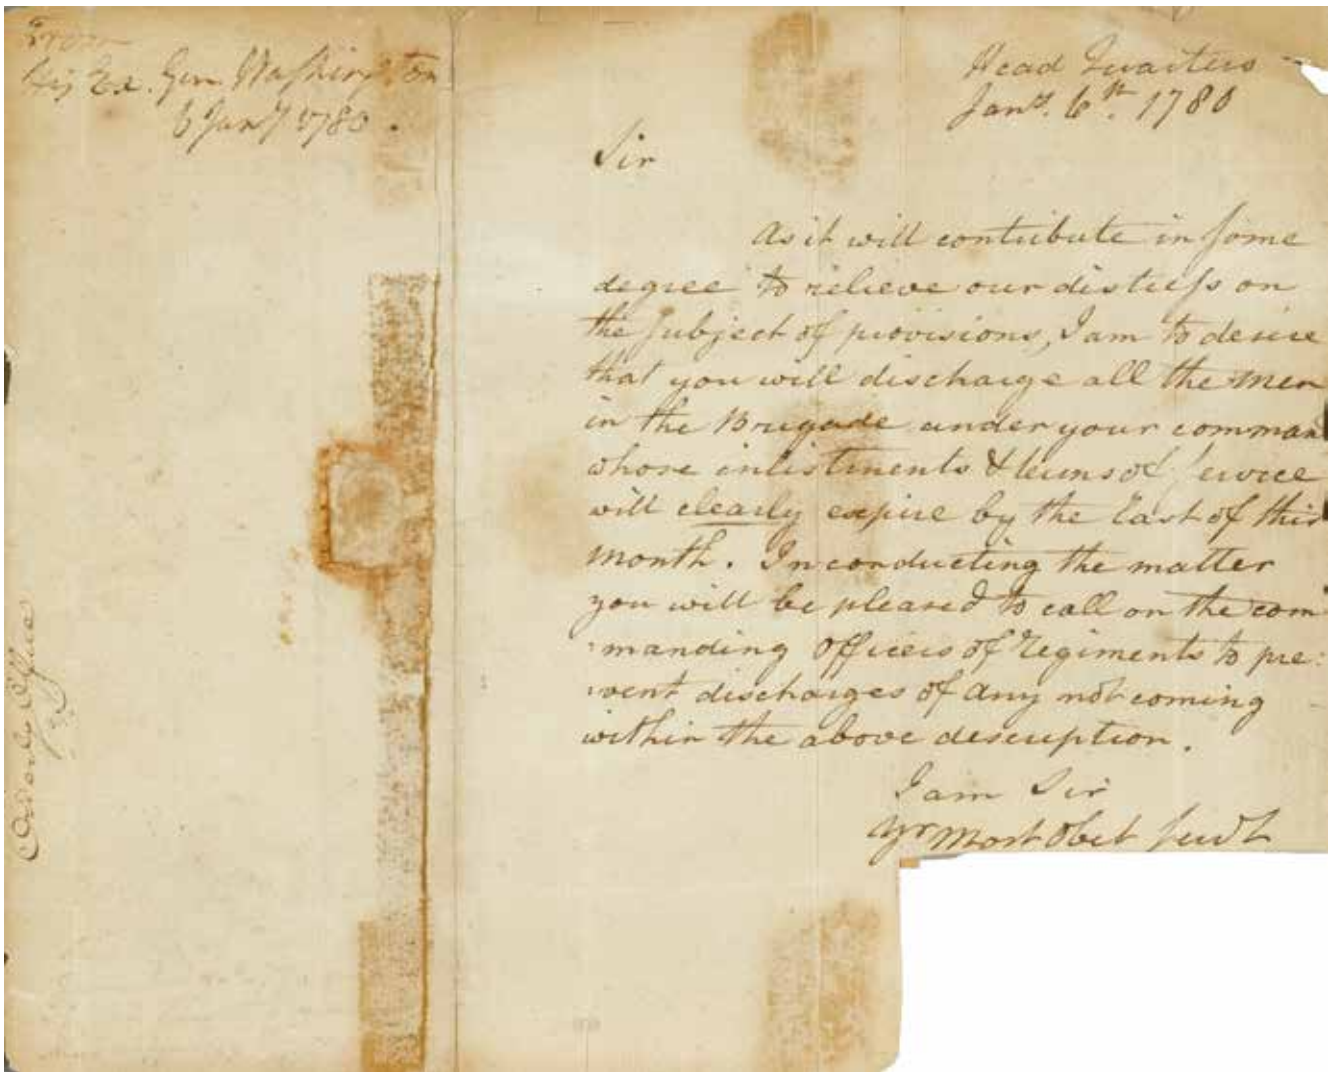 From
His Ex. Gen. Washington
6 Jany 1780.
Head Quarters
Jany. 6th. 1780
Sir
As it will contribute in some
degree to relieve our distress on
the subject of provisions, I am to desire
that you will discharge all the men
in the Brigade under your comman
whose inlistments & terms of service
will clearly expire by the last of this
month. In conducting the matter
you will be pleased to call on the com
manding officers of regiments to pre:
vent discharges of any not coming
within the above description.
I am Sir
Yr Most Obet servt
Orderly Office